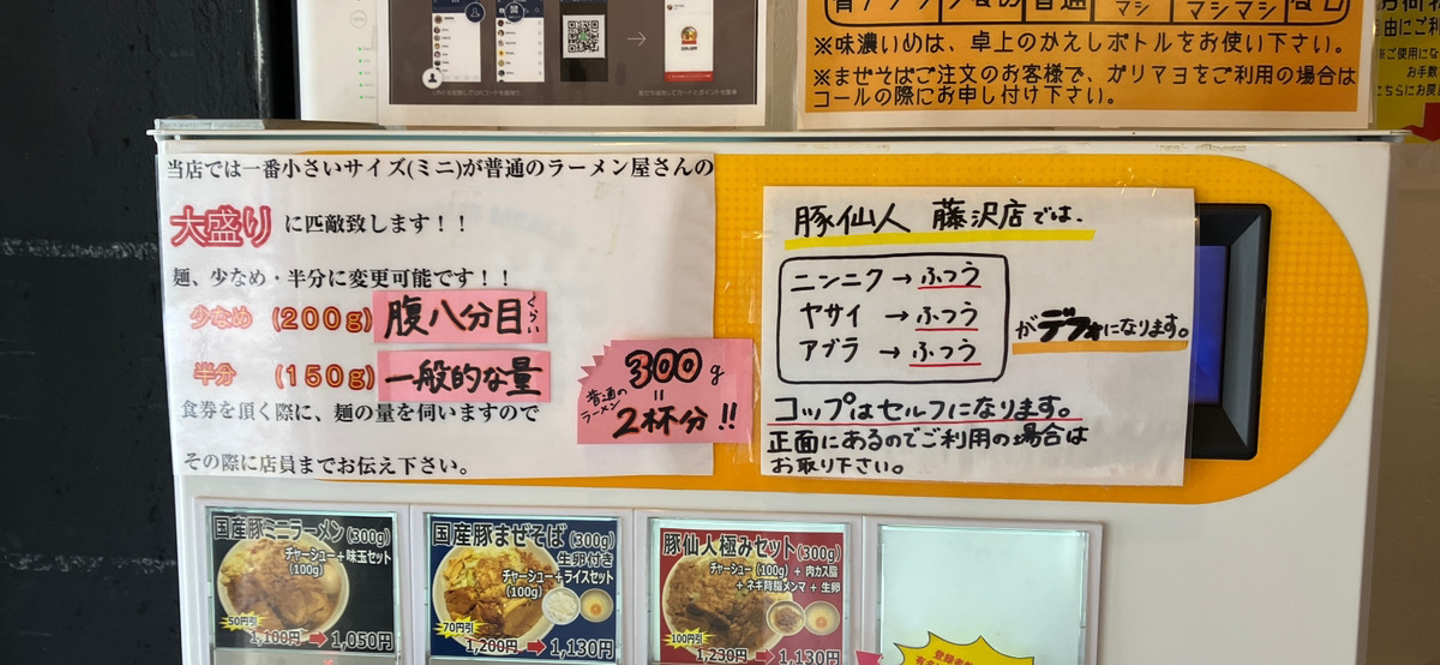 普通
マシ
マシマシ
※味濃いめは、卓上のかえしボトルをお使い下さい。
※まぜそばご注文のお客様で、ガリマヨをご利用の場合は
コールの際にお申し付け下さい。
お手数
こちらにお戻
当店では一番小さいサイズ(ミニ)が普通のラーメン屋さんの
大盛り に匹敵致します！！
麺、少なめ・半分に変更可能です！！
少なめ (200g) 腹八分目くらい
半分 (150g) 一般的な量
食券を頂く際に、麺の量を伺いますので
その際に店員までお伝え下さい。
300g
=
普通の
ラーメン
2杯分!!
豚仙人 藤沢店では、
ニンニク→ふつう
ヤサイ →ふつう
アブラ →ふつう
がデフォになります。
コップはセルフになります。
正面にあるのでご利用の場合は
お取り下さい。
国産豚ミニラーメン(300g)
チャーシュー+味玉セット
(100g)
50円引
1,100円➡1,050円
国産豚まぜそば(300g)
生卵付き
チャーシュー+ライスセット
(100g)
70円引
1,200円➡1,130円
豚仙人極みセット(300g)
チャーシュー(100g)+肉カス脂
+ネギ背脂メンマ+生卵
100円引
1,230円➡1,130円